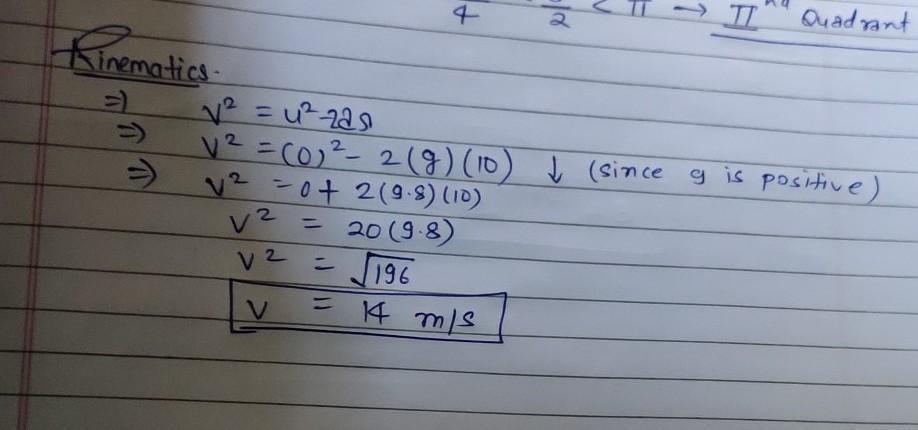 π/4 < 3/2 < π → IInd Quadrant
Kinematics.
⇒ v² = u²-2as
⇒ v² = (0)² - 2(g)(10) ↓ (since g is positive)
⇒ v² = 0 + 2(9.8)(10)
v² = 20(9.8)
v² = √196
v = 14 m/s